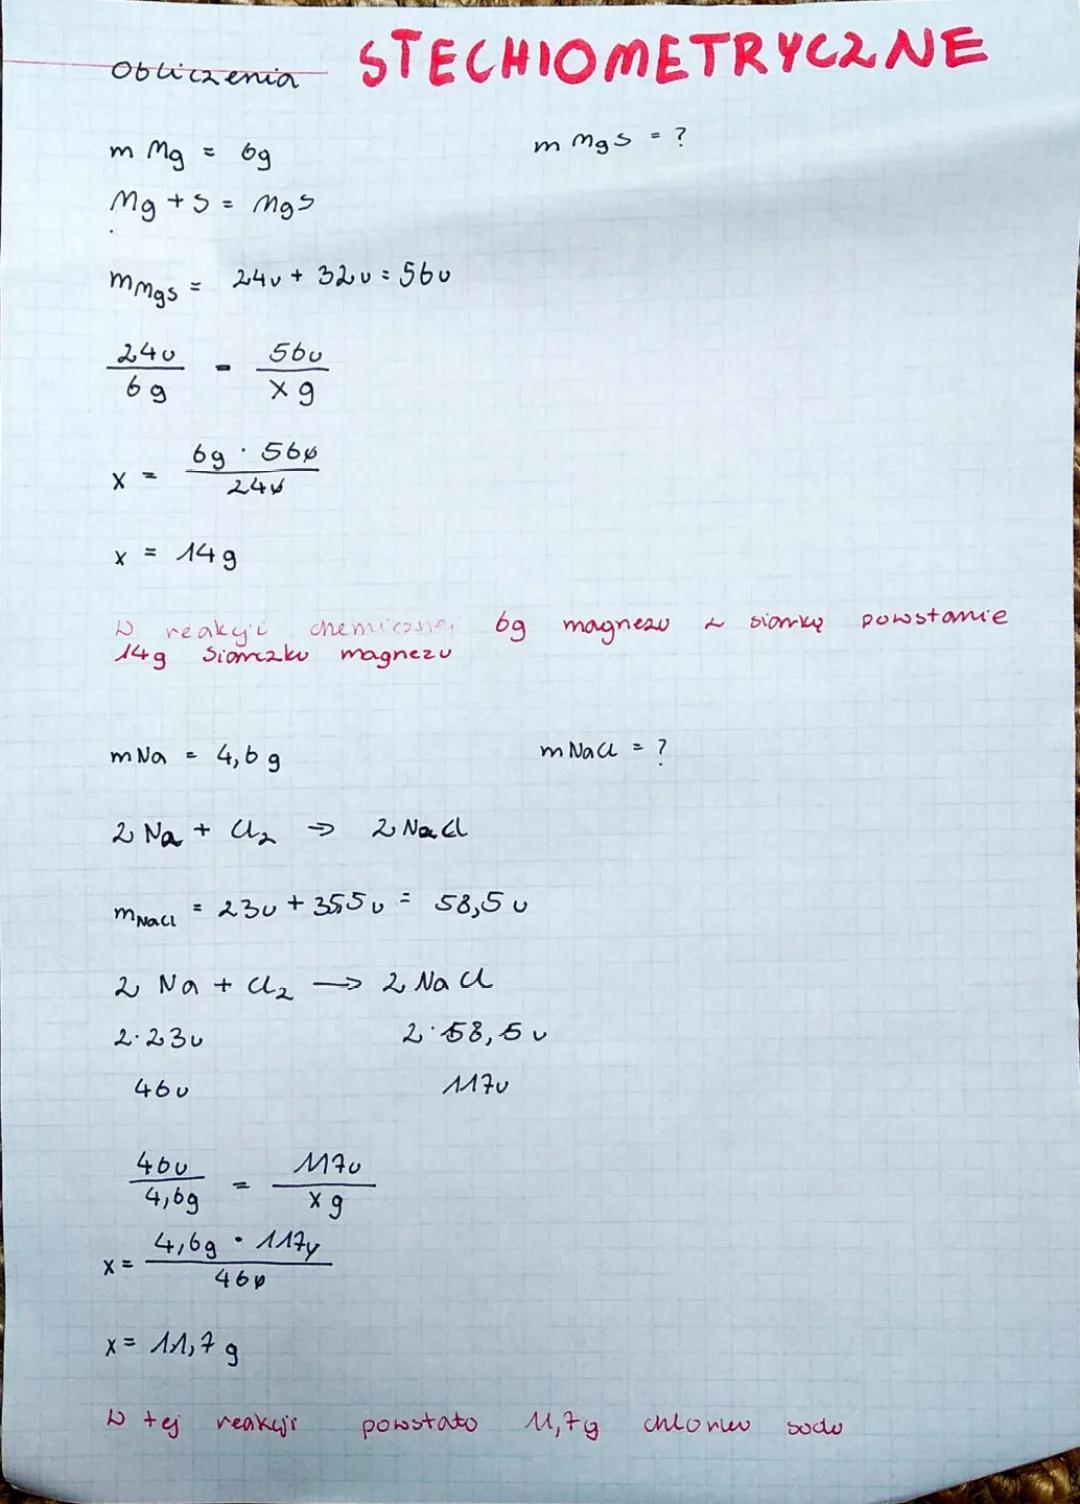 Obliczenia STECHIOMETRYCZNE
m Mg = 6g m MgS = ?
Mg + S = MgS
mMgS = 24u + 32u = 56u
24u/6g = 56u/x g
x = 6g · 56u/24u
x = 14g
W reakcji chemicznej 6g magnezu z siarką powstanie
14g siarczku magnezu
mNa = 4,6g mNaCl = ?
2 Na + Cl₂ → 2 NaCl
mNaCl = 23u + 35,5u = 58,5u
2 Na + Cl₂ → 2 NaCl
2·23u 2·58,5u
46u 117u
46u/4,6g = 117u/x g
x = 4,6g · 117u/46u
x = 11,7g
W tej reakcji powstało 11,7g chlorku sodu